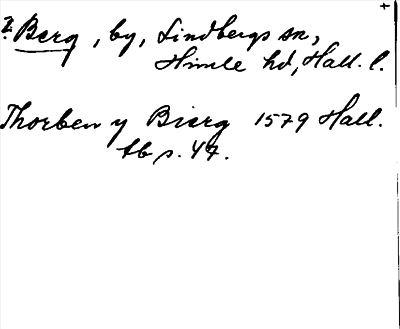 ? Berg, by, Lindbergs sn,
Himle hd, Hall. l.
Thorben y Bierg 1579 Hall.
tb s. 47.